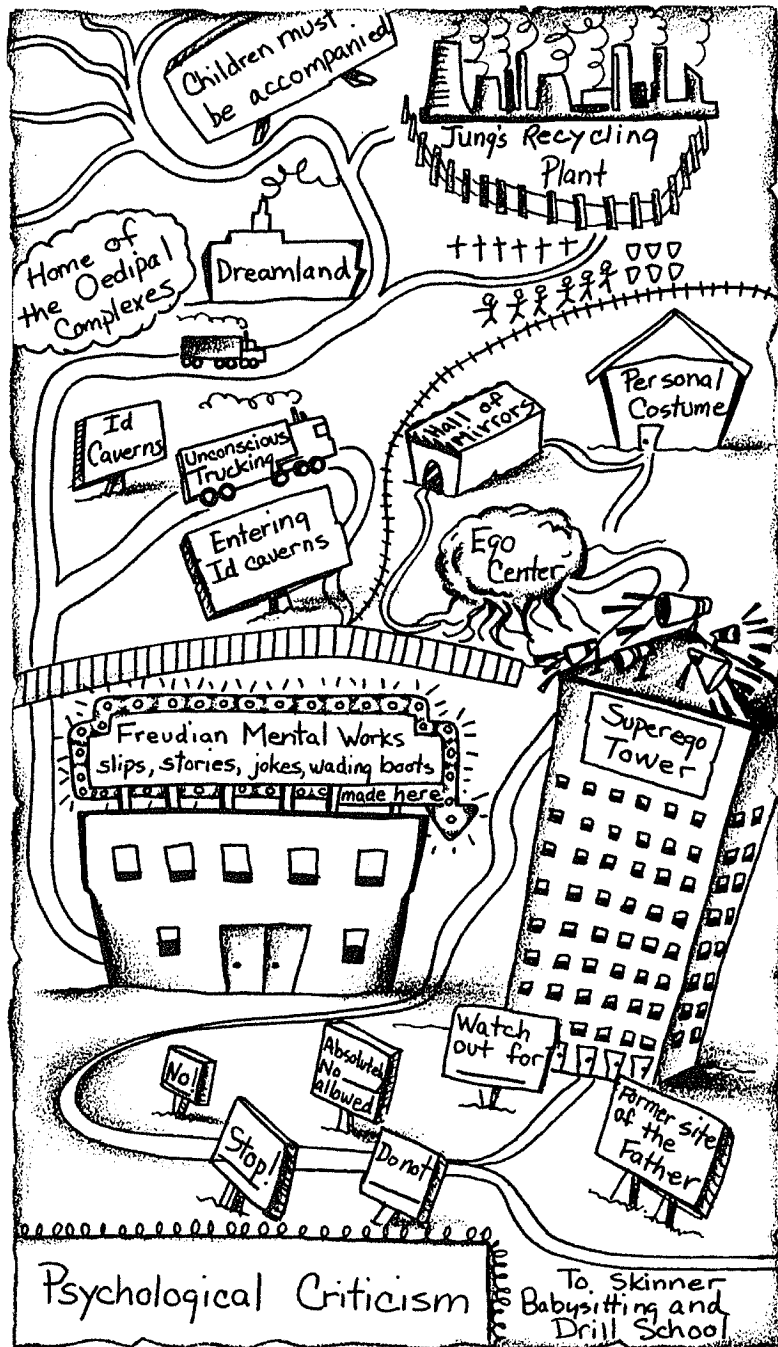 Children must
be accompanied
Jung's Recycling
Plant
Home of
the Oedipal
Complexes
Dreamland
Personal
Costume
Hall of
Mirrors
Id
Caverns
Unconscious
Trucking
Entering
Id caverns
Ego
Center
Freudian Mental Works
slips, stories, jokes, wading boots
made here
Superego
Tower
Watch
out for
No!
Absolutely
No
allowed
Stop!
Do not
Former site
of the
Father
Psychological Criticism
To Skinner
Babysitting and
Drill School